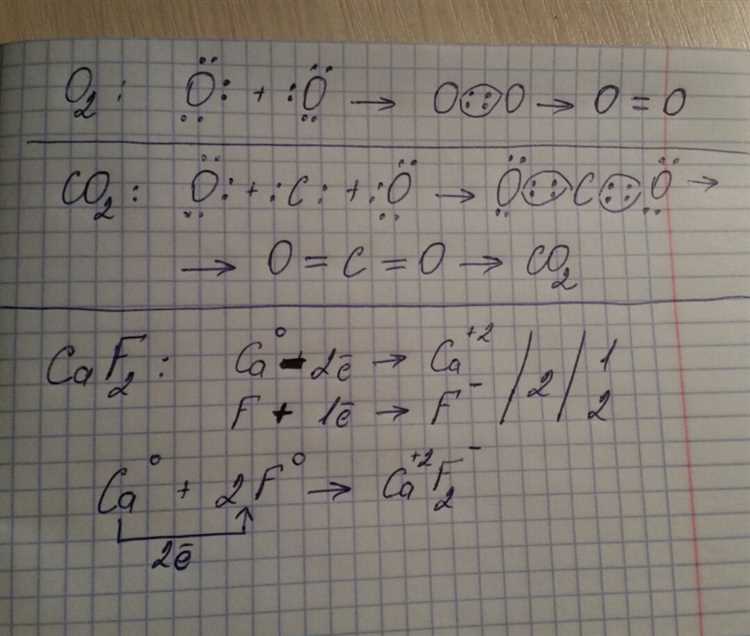 O₂: Ö: + :Ö → O::O → O = O
CO₂: Ö: + :C: + :Ö → Ö::C::Ö →
→ O = C = O → CO₂
CaF₂: Ca⁰ - 2ē → Ca⁺² / 2 / 1
F + 1ē → F⁻ 2
Ca⁰ + 2F⁰ → Ca⁺²F₂⁻
2ē